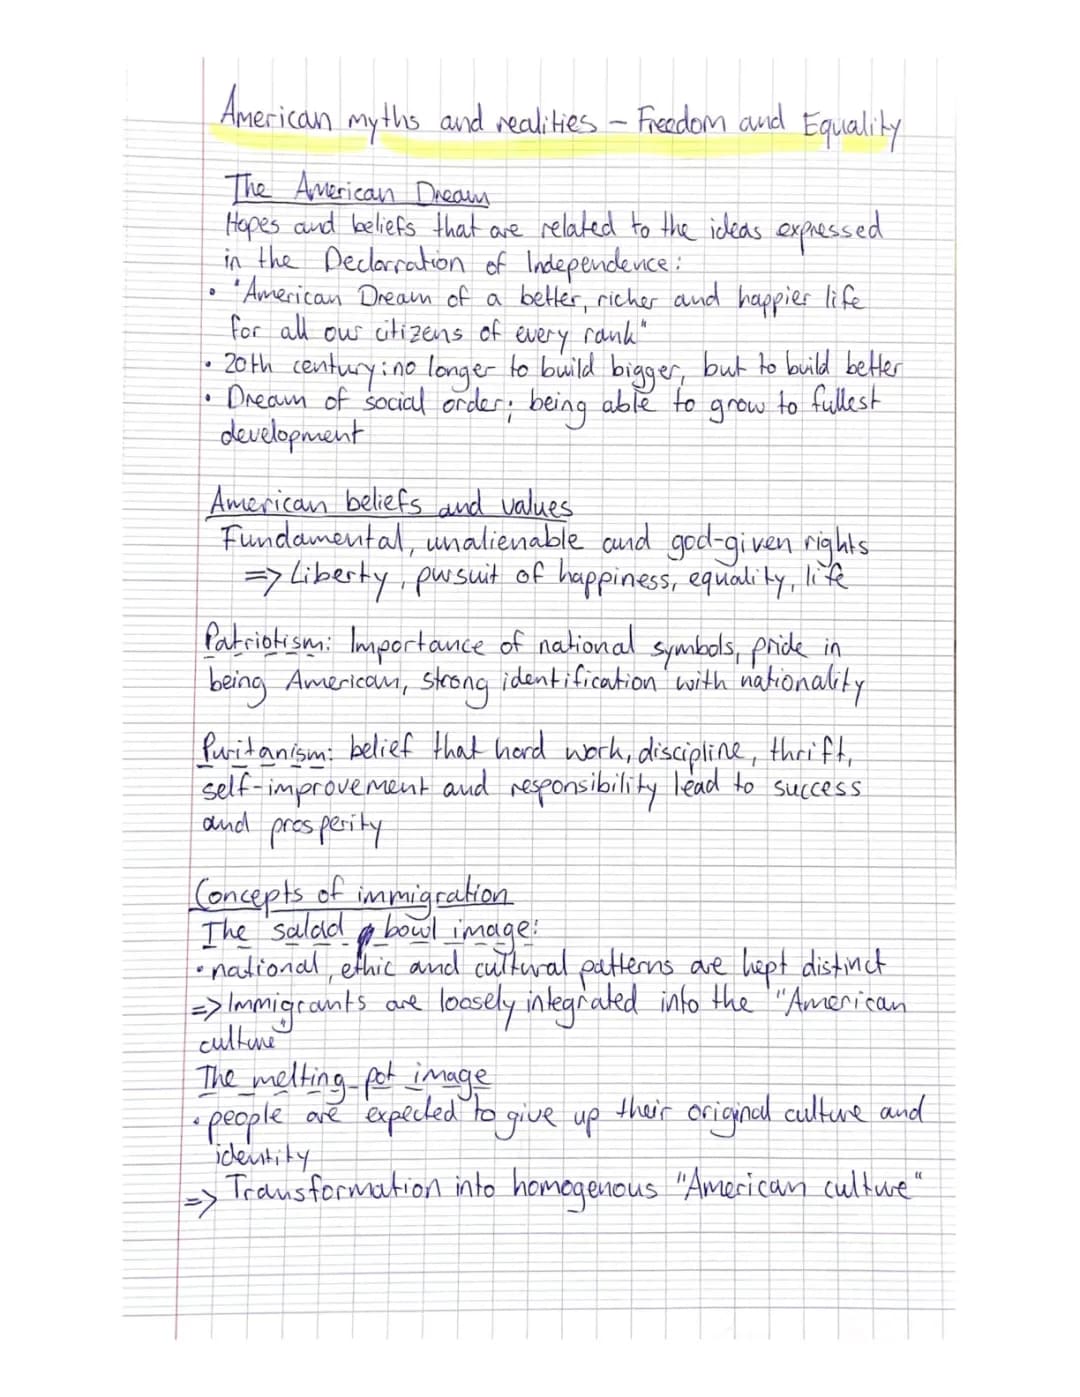 American myths and realities – Freedom and Equality
The American Dream
Hopes and beliefs that are related to the ideas expressed
in the Declarration of Independence:
• "American Dream of a better, richer and happier life
for all our citizens of every rank"
• 20th century: no longer to build bigger, but to build better
• Dream of social order; being able to grow to fullest
development
American beliefs and values
Fundamental, unalienable and god-given rights
=> Liberty, pursuit of happiness, equality, life
Patriotism: Importance of national symbols, pride in
being American, strong identification with nationality
Puritanism: belief that hard work, discipline, thrift,
self-improvement and responsibility lead to success
and prosperity
Concepts of immigration
The salad bowl image:
• national, ethic and cultural patterns are kept distinct
=> Immigrants are loosely integrated into the "American
culture"
The melting pot image
• people are expected to give up their original culture and
identity
=> Transformation into homogenous "American culture"